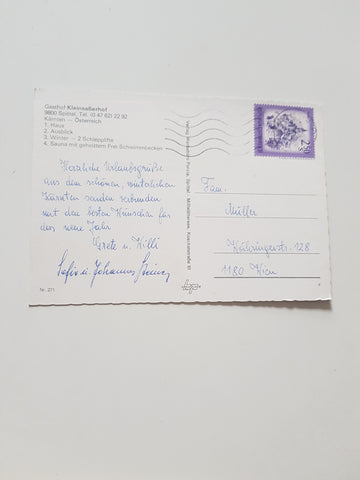 Gasthof Kleinsaßerhof
9800 Spittal, Tel. (0 47 62) 22 92
Kärnten — Österreich
1. Haus
2. Ausblick
3. Winter — 2 Schlepplifte
4. Sauna mit geheiztem Frei-Schwimmbecken
Herzliche Urlaubsgrüße
aus dem schönen, winterlichen
Kärnten senden verbunden
mit den besten Wünschen für
das neue Jahr
Grete u. Willi
Sefi u. Johannes
Nr. 271
Fam.
Müller
Währingerstr. 128
1180 Wien